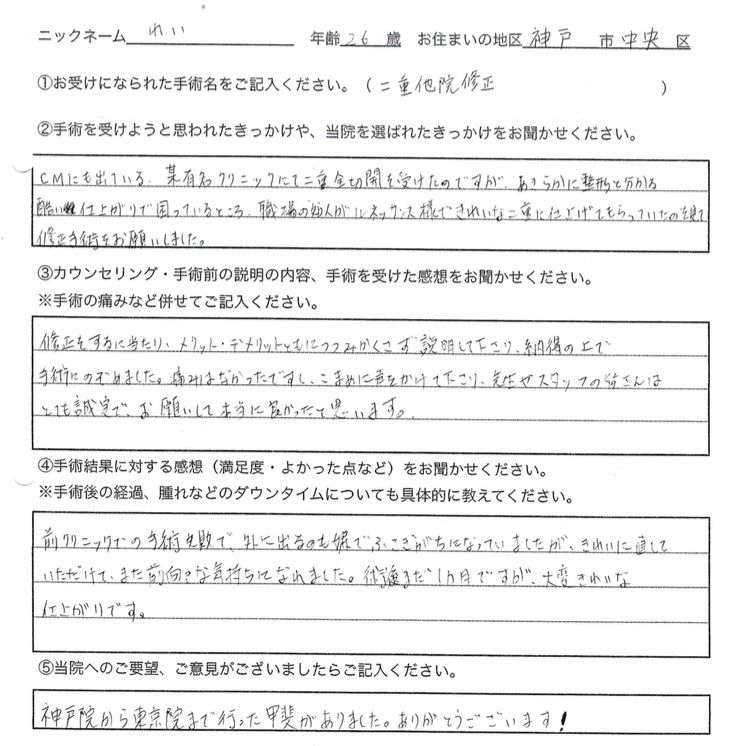 ニックネーム れい 年齢 26 歳 お住まいの地区 神戸 市 中央 区
①お受けになられた手術名をご記入ください。( 二重他院修正 )
②手術を受けようと思われたきっかけや、当院を選ばれたきっかけをお聞かせください。
CMにも出ている、某有名クリニックにて二重全切開を受けたのですが、あきらかに整形と分かる
酷い仕上がりで困っているところ、職場の知人がルネッサンス様できれいな二重に仕上げてもらっていたのを見て
修正手術をお願いしました。
③カウンセリング・手術前の説明の内容、手術を受けた感想をお聞かせください。
※手術の痛みなど併せてご記入ください。
修正をするに当たり、メリット・デメリットともにつつみかくさず説明して下さり、納得の上で
手術にのぞめました。痛みはなかったですし、こまめに声をかけて下さり、先生やスタッフの皆さんは
とても誠実で、お願いして本当に良かったと思います。
④手術結果に対する感想（満足度・よかった点など）をお聞かせください。
※手術後の経過、腫れなどのダウンタイムについても具体的に教えてください。
前クリニックでの手術失敗で、外に出るのも嫌でふさぎがちになっていましたが、きれいに直して
いただけて、また前向きな気持ちになれました。術後まだ1カ月ですが、大変きれいな
仕上がりです。
⑤当院へのご要望、ご意見がございましたらご記入ください。
神戸院から東京院まで行った甲斐がありました。ありがとうございます!